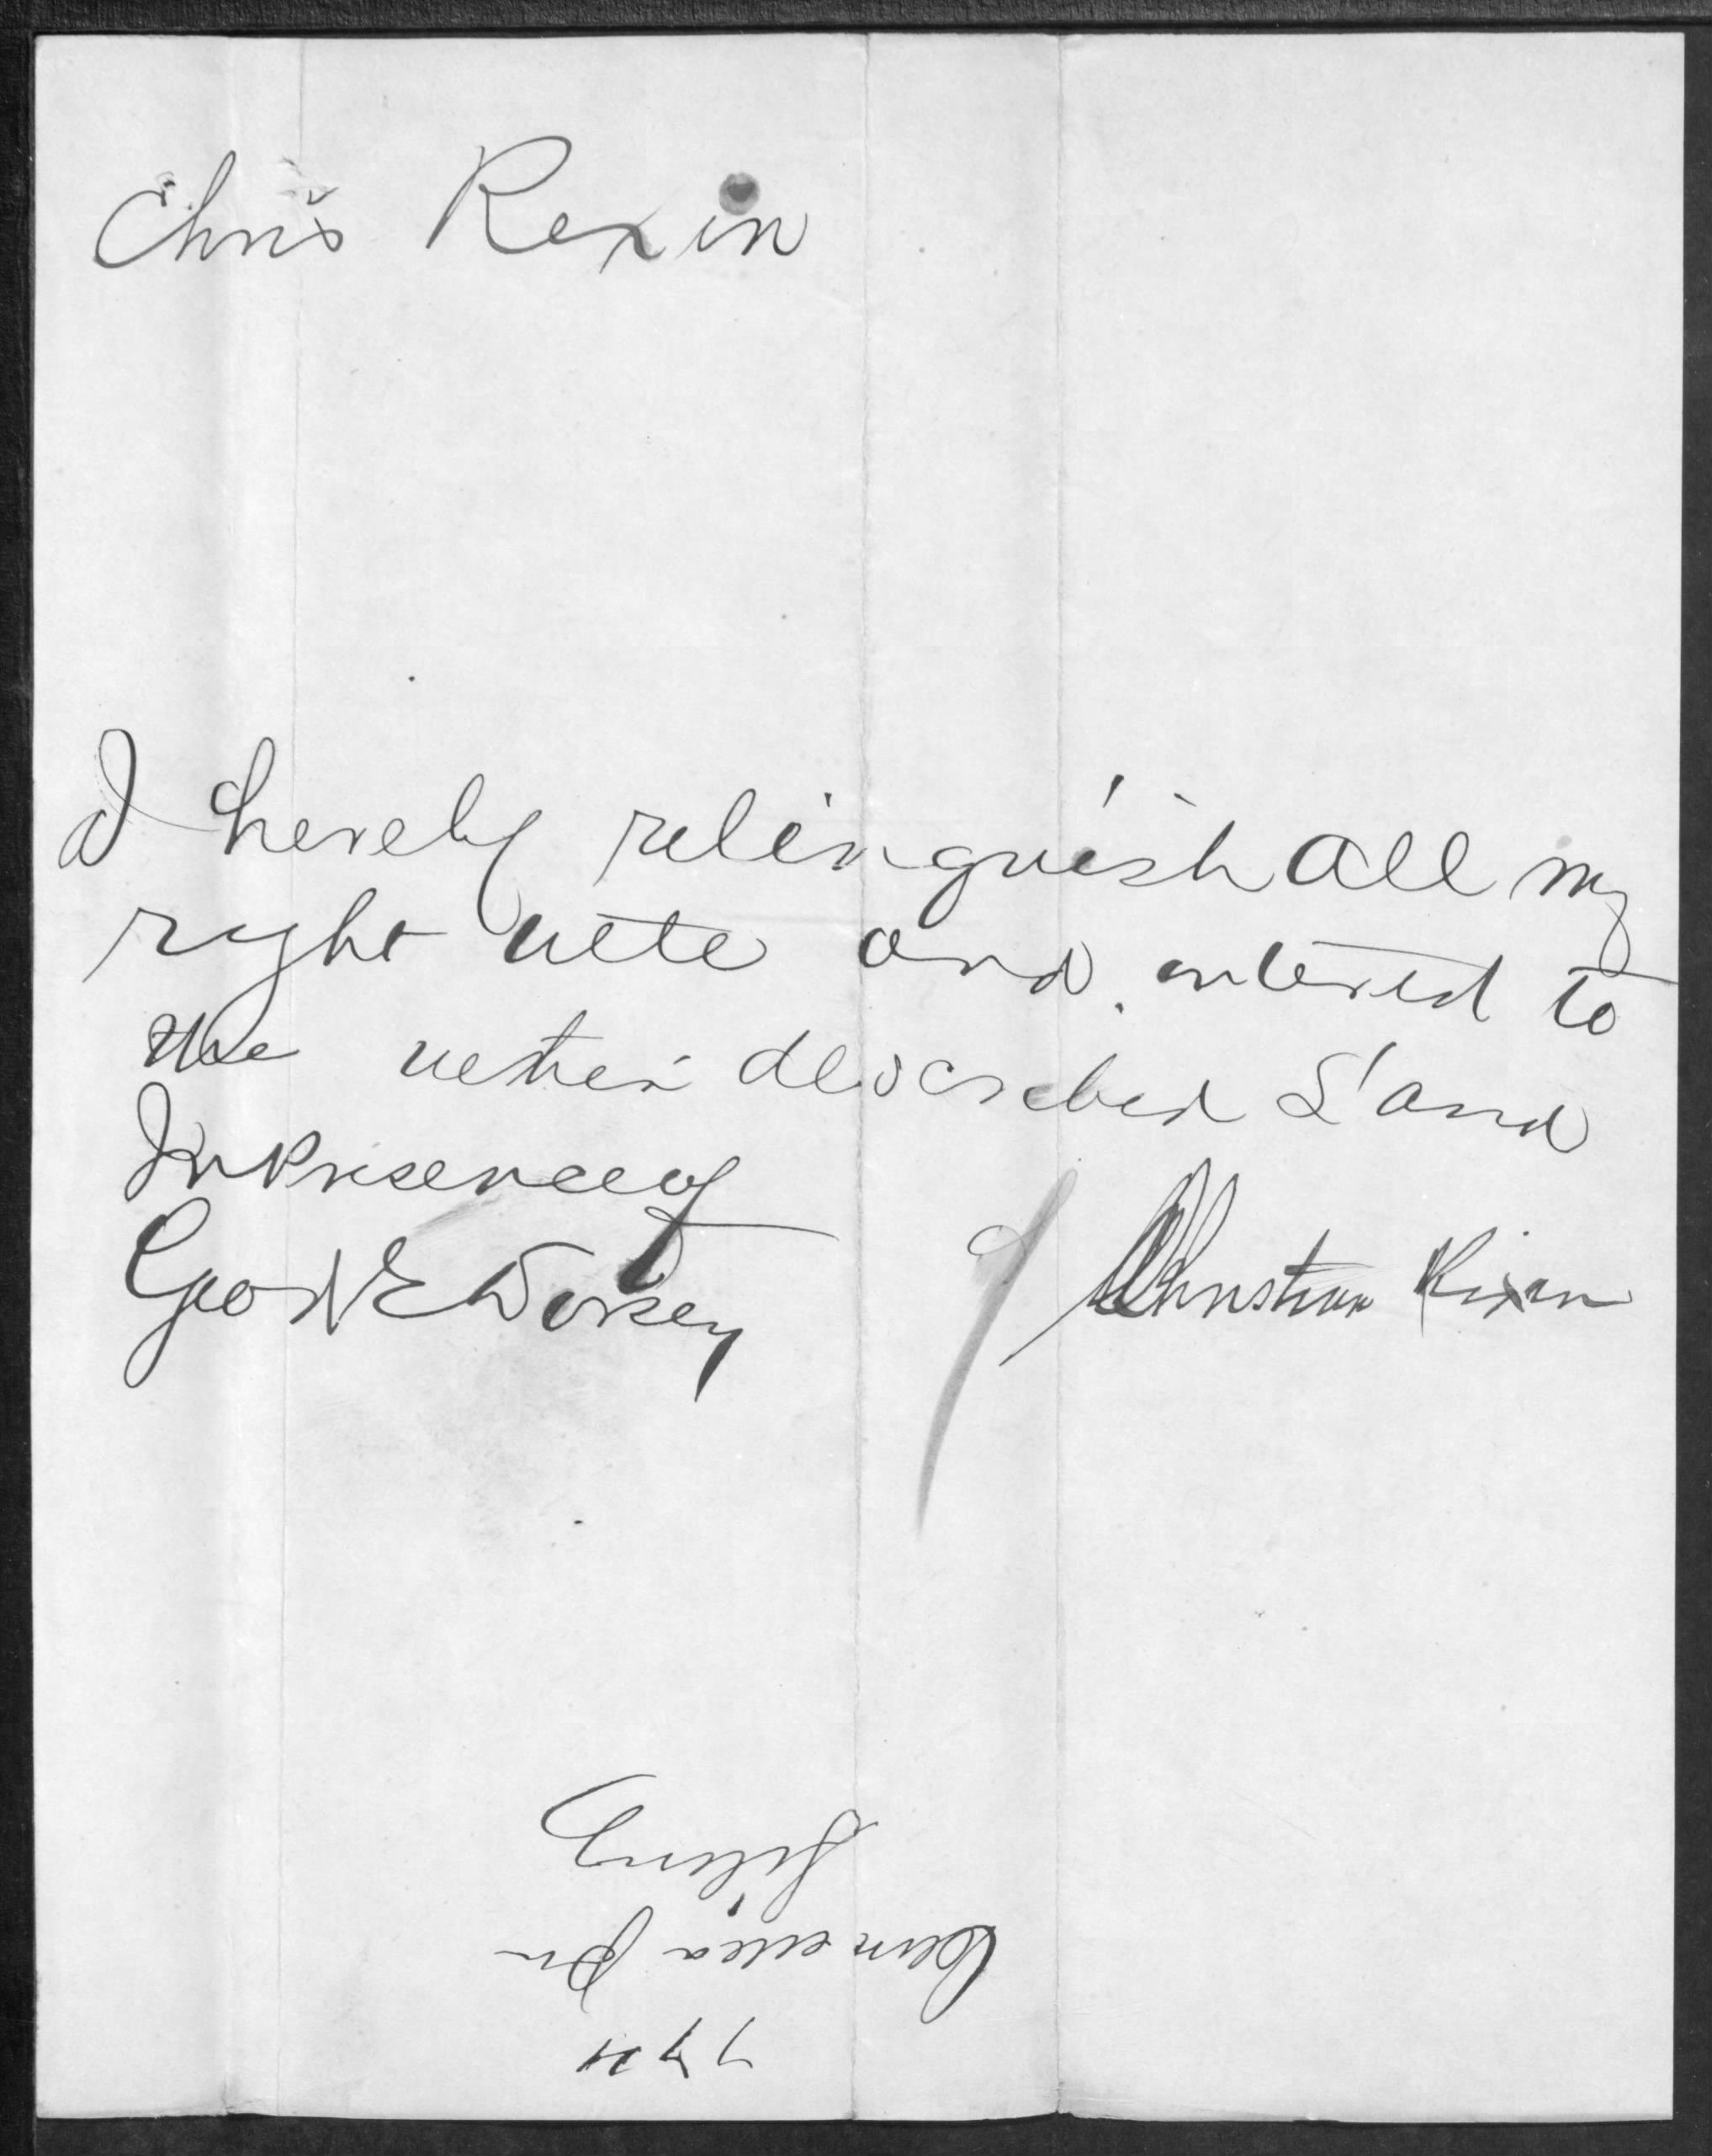 Chris Rexin
I hereby relinquish all my
right title and interest to
the within described Land
In Presence of
Geo N E Dorsey
Christian Rixin